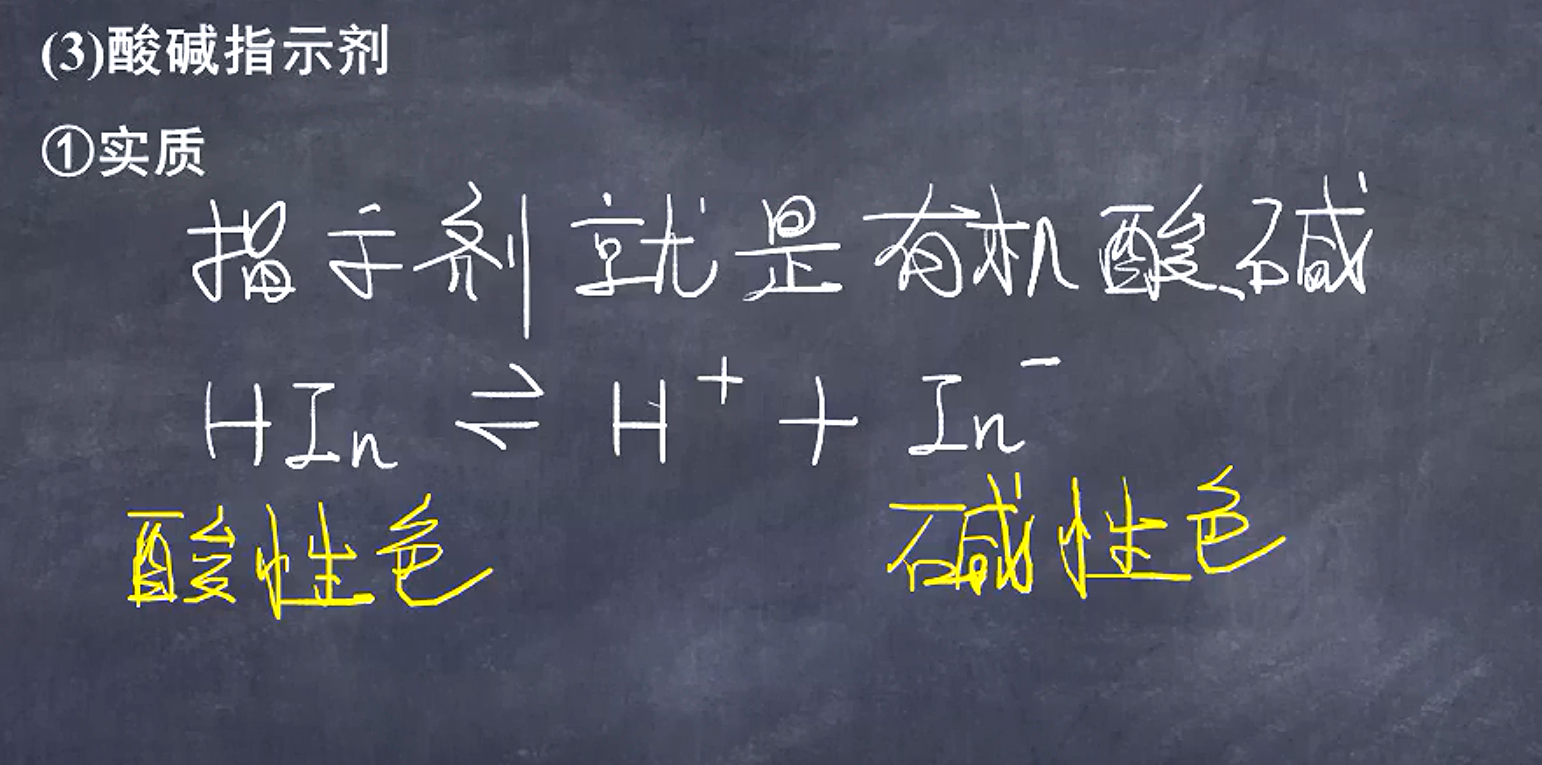 (3)酸碱指示剂
①实质
指示剂就是有机酸、碱
HIn ⇌ H⁺ + In⁻
酸性色 碱性色